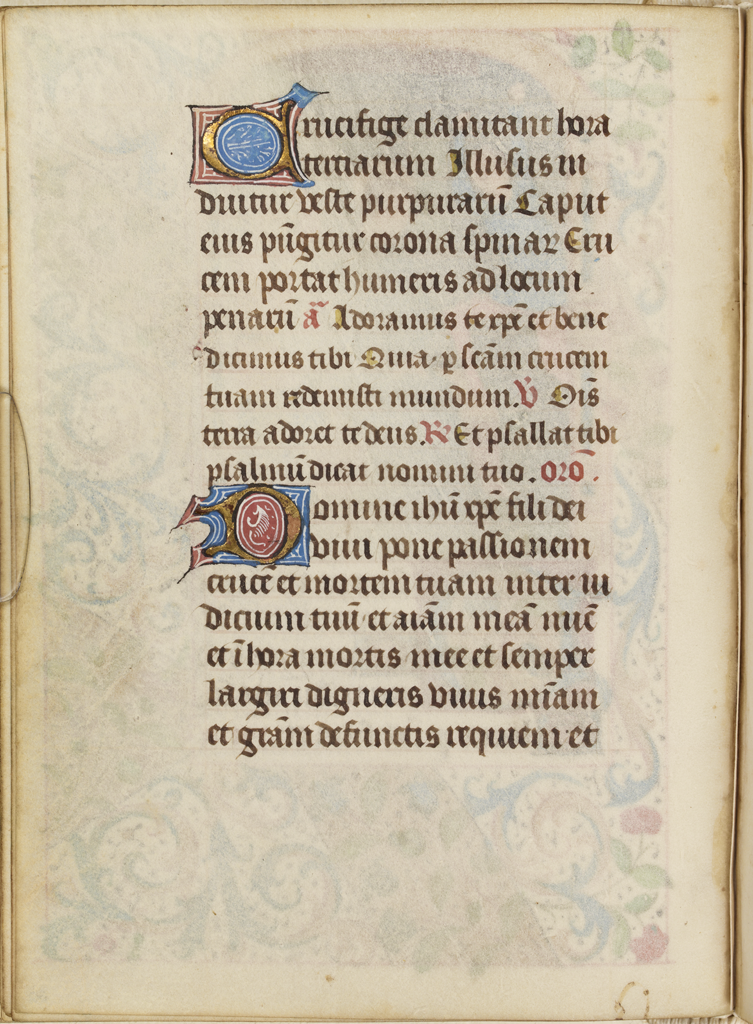 Crucifige clamitant hora
terciarum Illusus in
duitur veste purpurarū Caput
eius pūgitur corona spinaꝝ Cru
cem portat humeris ad locum
penarū aā Adoramus te xpē et bene
dicimus tibi Quia ꝑ scām crucem
tuam redemisti mundum. V̄ Oīs
terra adoret te deus. R̄ Et psallat tibi
psalmū dicat nomini tuo. orō.
Domine ihū xpē fili dei
viui pone passionem
crucē et mortem tuam inter iu
dicium tuū et aīam meā nūc
et ī hora mortis mee et semper
largiri digneris viuis mīam
et grām defunctis requiem et